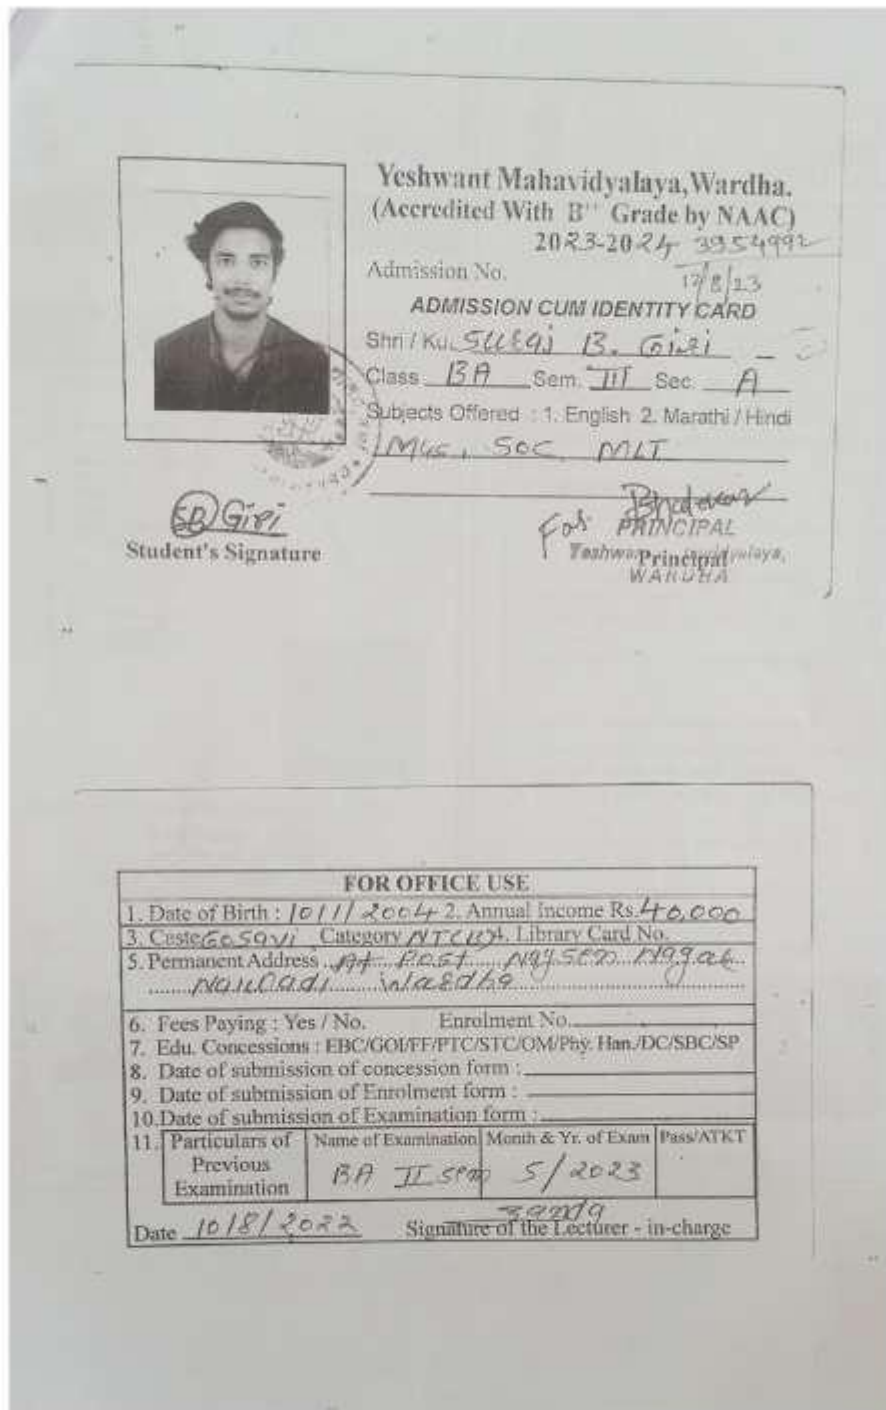 Yeshwant Mahavidyalaya,Wardha.
(Accredited With B⁺⁺ Grade by NAAC)
2023-2024 3954992
Admission No. 17/8/23
ADMISSION CUM IDENTITY CARD
Shri / Ku. Suraj B. Giri
Class BA Sem. III Sec. A
Subjects Offered : 1. English 2. Marathi / Hindi
Mus, SOC MLT
SB Giri
Student's Signature
For
PRINCIPAL
Principal
WARDHA
FOR OFFICE USE
1. Date of Birth : 10/1/2004 2. Annual Income Rs. 40,000
3. Caste Gosavi Category NT 4. Library Card No.
5. Permanent Address At Post Nagsen Nagar
Wardha
6. Fees Paying : Yes / No. Enrolment No.
7. Edu. Concessions : EBC/GOI/FF/PTC/STC/OM/Phy. Han./DC/SBC/SP
8. Date of submission of concession form :
9. Date of submission of Enrolment form :
10.Date of submission of Examination form :
11. Particulars of Previous Examination Name of Examination Month & Yr. of Exam Pass/ATKT
BA II sem 5/2023
Date 10/8/2022 Signature of the Lecturer - in-charge